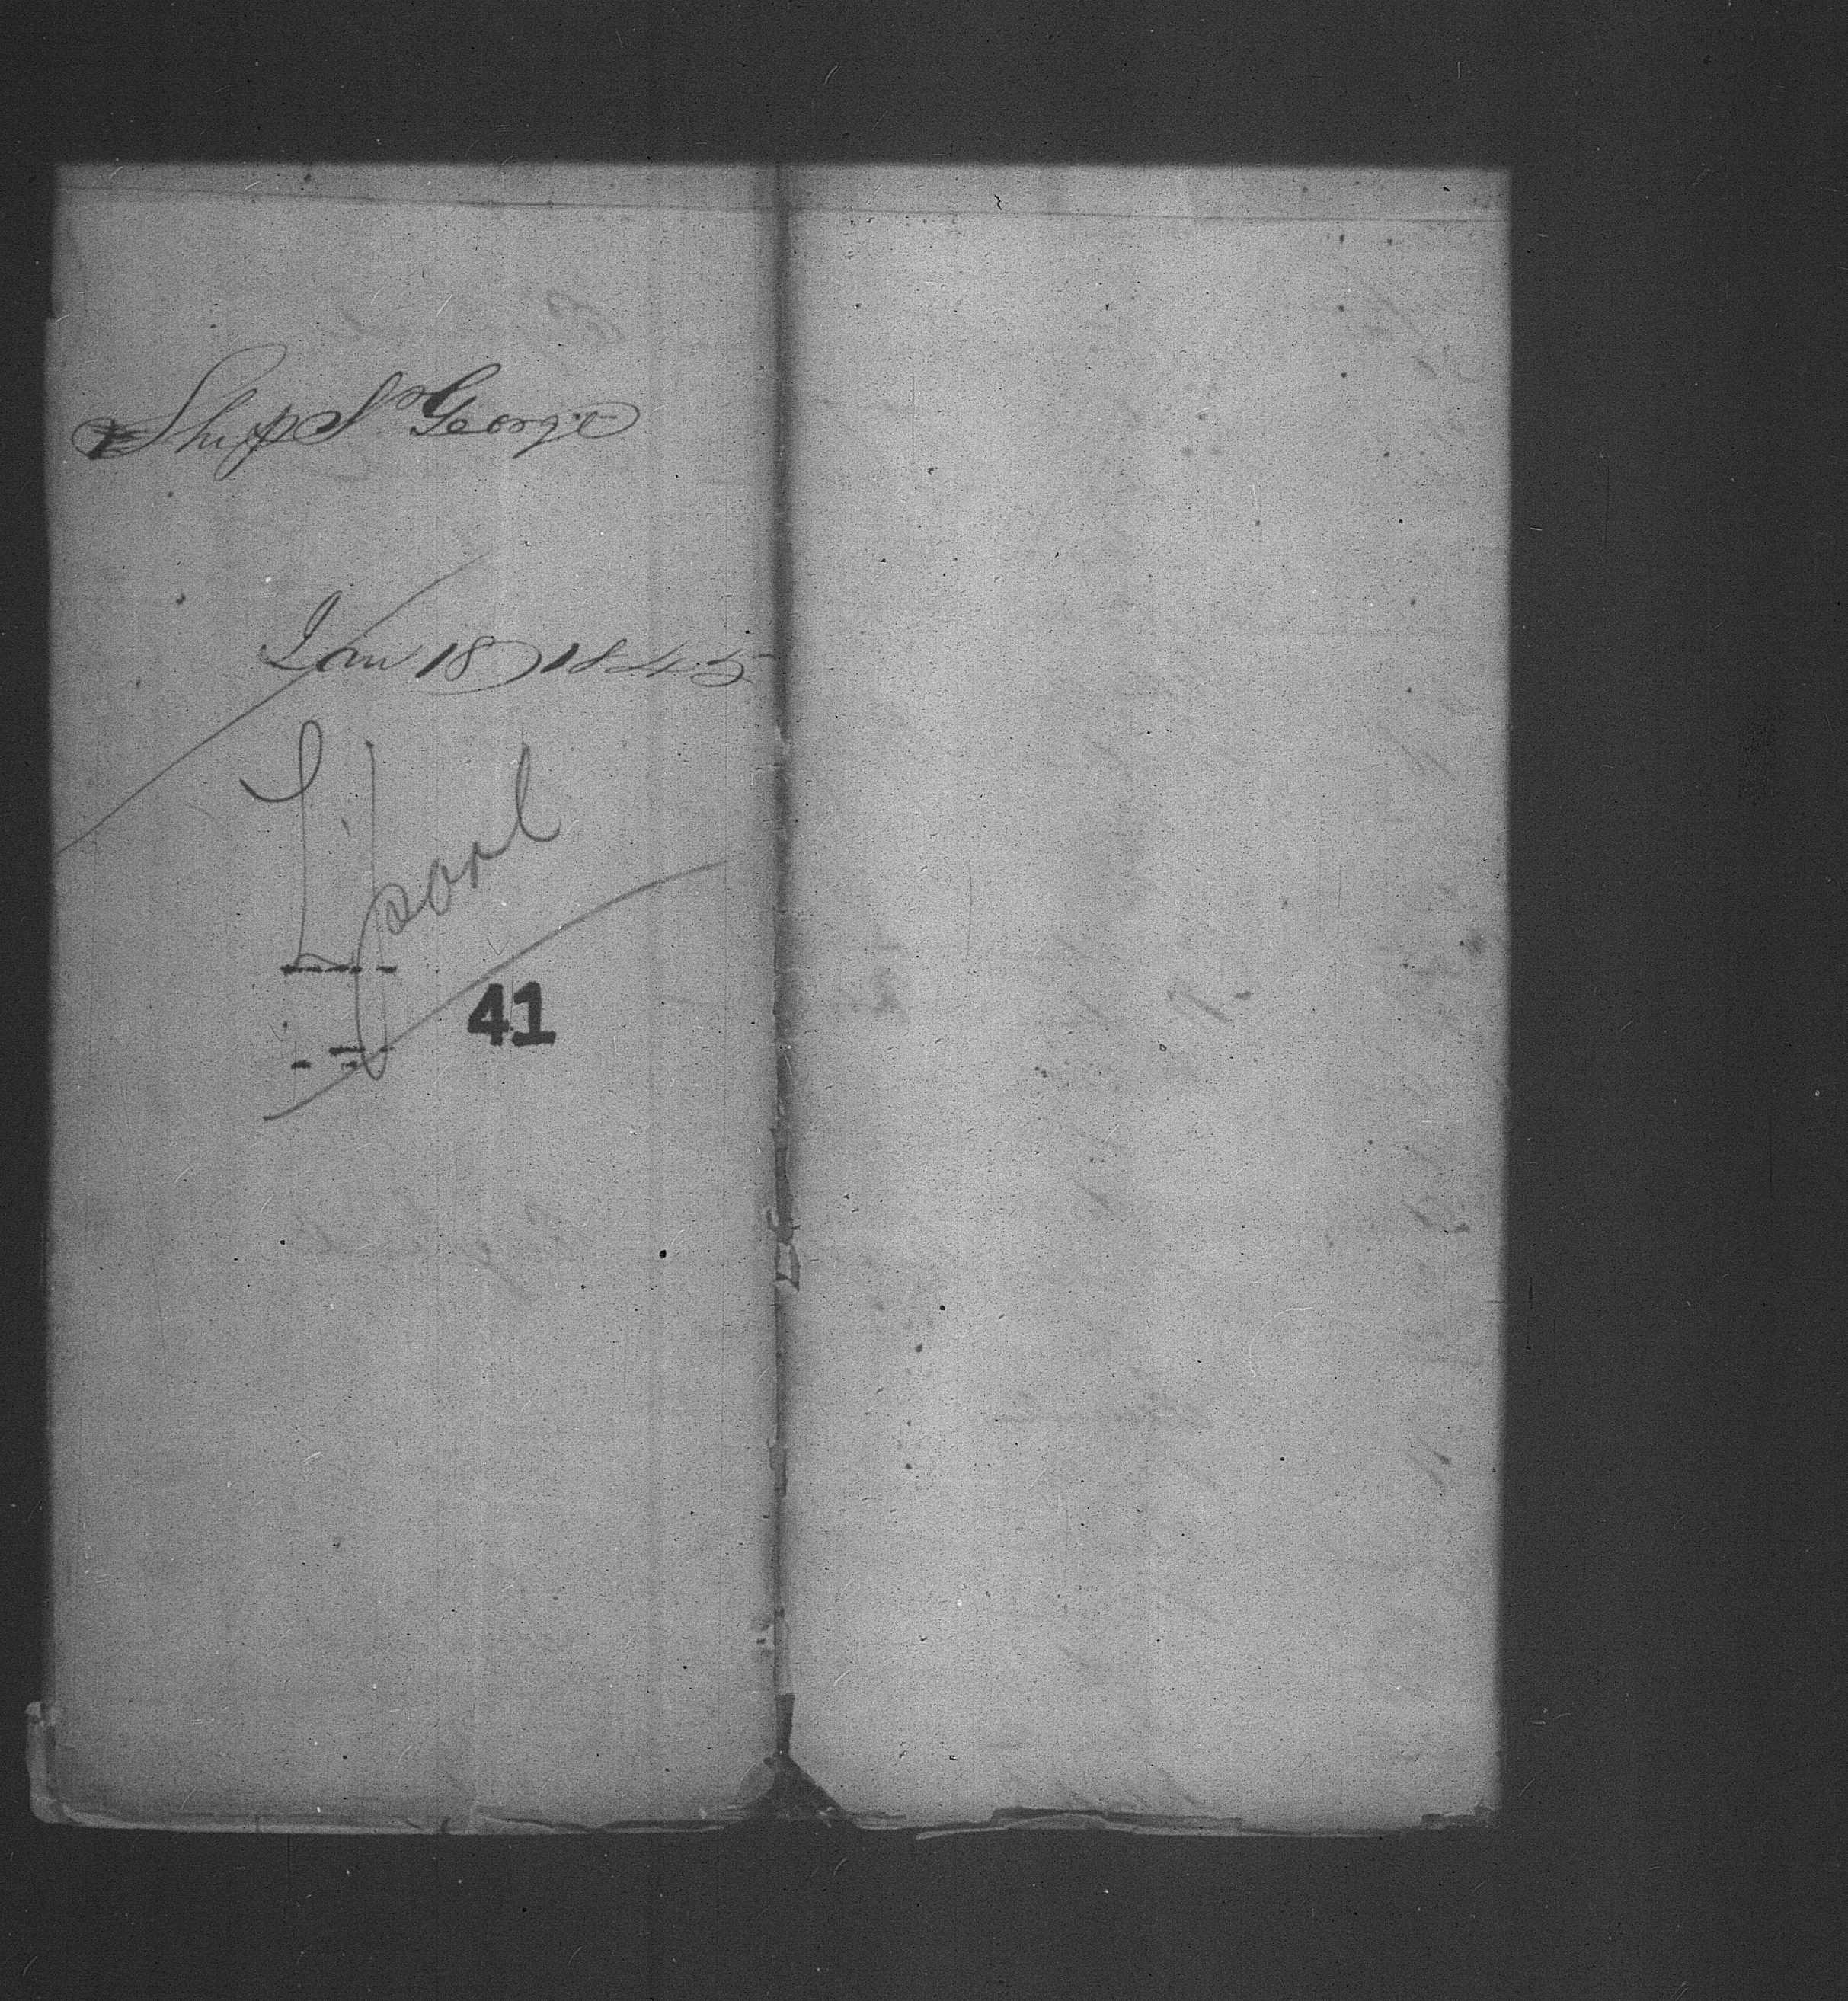 Ship St George
Jan 18 1845
L'pool
41